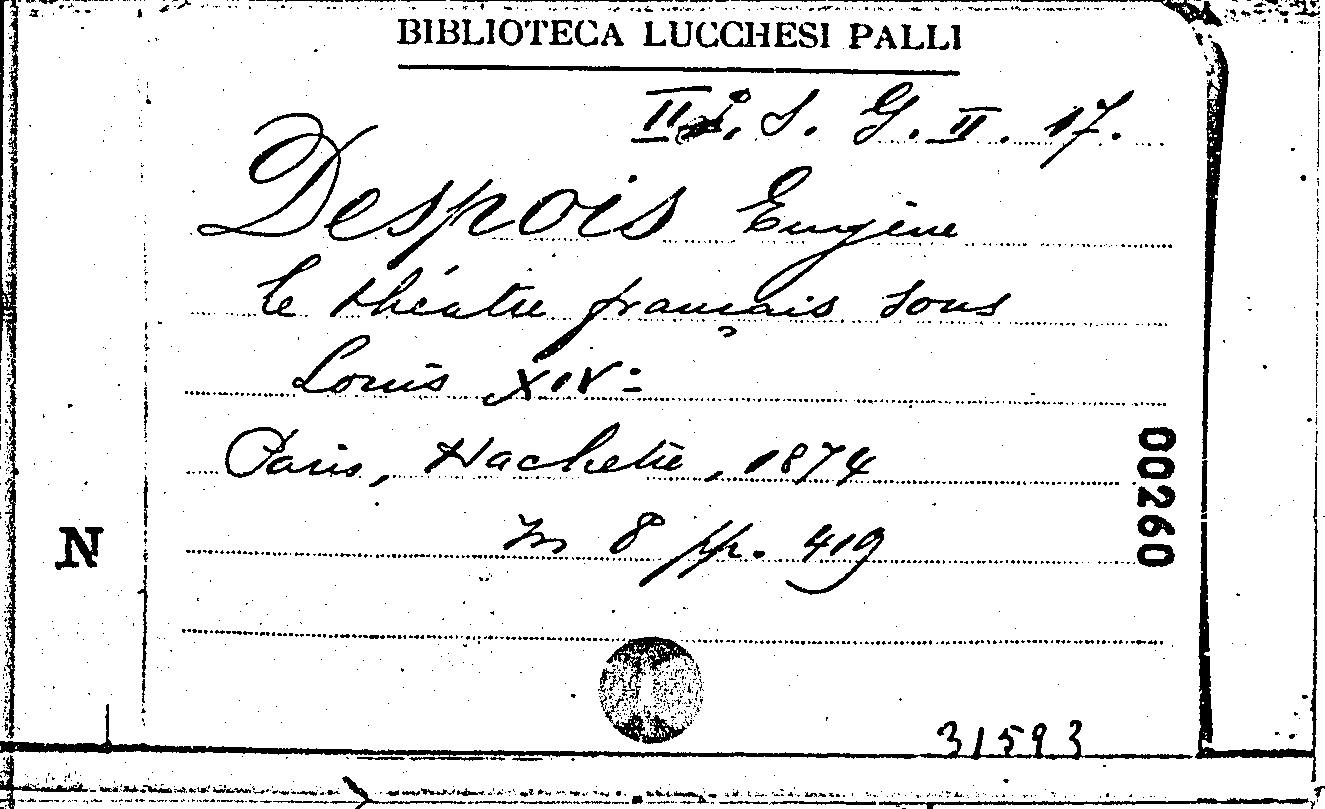 BIBLIOTECA LUCCHESI PALLI
II S. G. II. 17.
Despois Eugène
le théatre français sous
Louis XIV:
Paris, Hachette, 1874
in 8 pp. 419
N
00260
31593